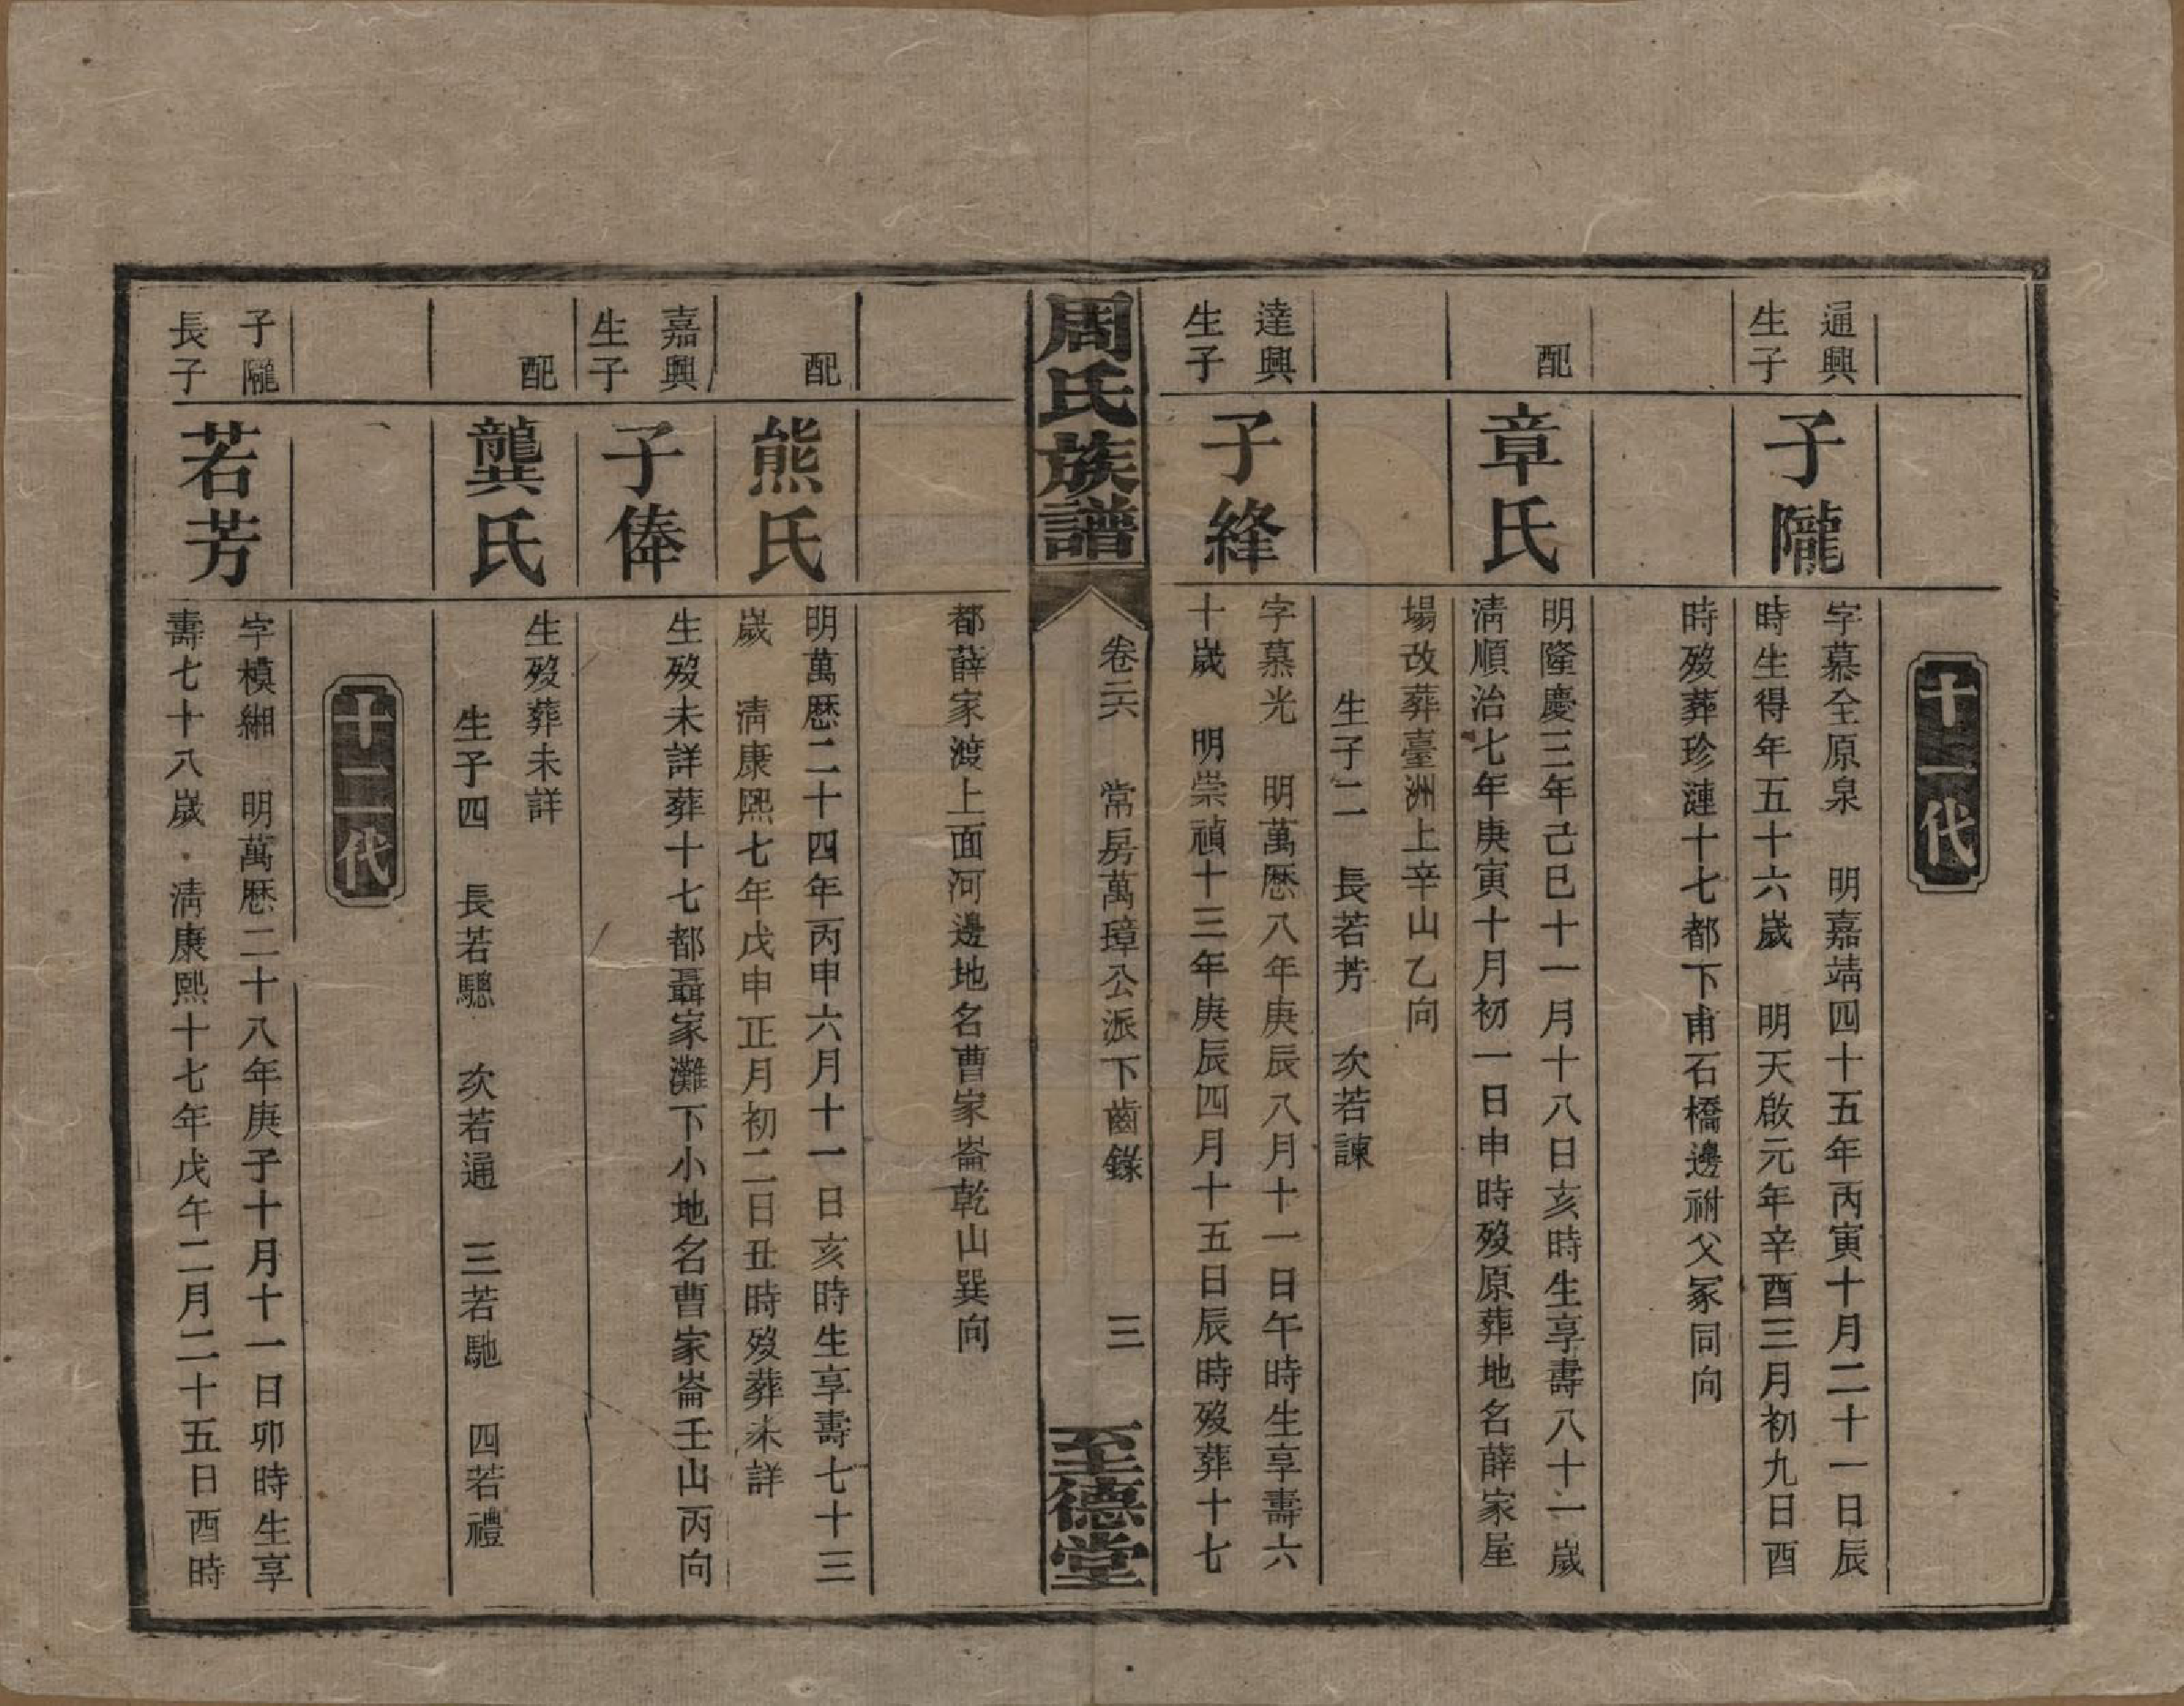 十一代
通興
生子
子隴
字慕全原泉　明嘉靖四十五年丙寅十月二十一日辰
時生得年五十六歲　明天啟元年辛酉三月初九日酉
時歿葬珍漣十七都下甫石橋邊祔父冢同向
配
章氏
明隆慶三年己巳十一月十八日亥時生享壽八十一歲
清順治七年庚寅十月初一日申時歿原葬地名薛家屋
場改葬臺洲上辛山乙向
生子二　長若芳　次若諫
達興
生子
子絳
字慕光　明萬歷八年庚辰八月十一日午時生享壽六
十歲　明崇禎十三年庚辰四月十五日辰時歿葬十七
周氏族譜
卷二六　常房萬璋公派下齒錄　三
至德堂
都薛家渡上面河邊地名曹家崙乾山巽向
配
熊氏
明萬歷二十四年丙申六月十一日亥時生享壽七十三
歲　清康熙七年戊申正月初二日丑時歿葬未詳
嘉興
生子
子俸
生歿未詳葬十七都聶家灘下小地名曹家崙壬山丙向
配
龔氏
生歿葬未詳
生子四　長若驄　次若通　三若馳　四若禮
十二代
子隴
長子
若芳
字模緗　明萬歷二十八年庚子十月十一日卯時生享
壽七十八歲　清康熙十七年戊午二月二十五日酉時